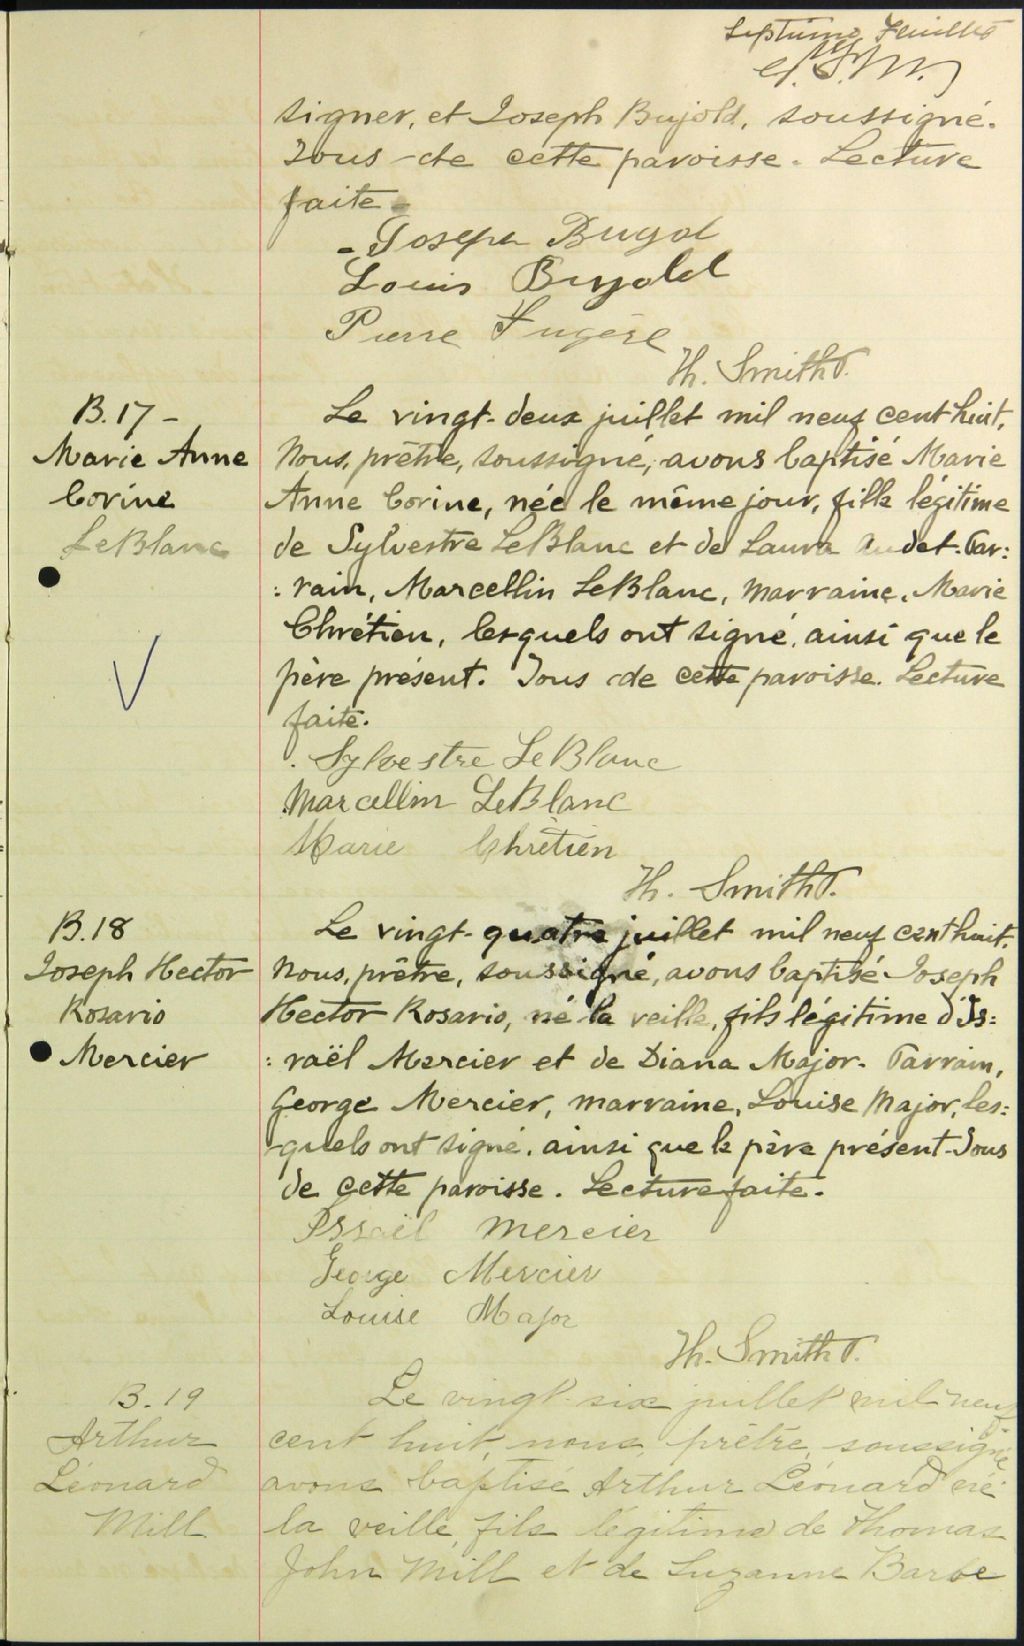 Septième Feuillet
signer, et Joseph Bujold, soussigné.
Tous de cette paroisse. Lecture
faite.
Joseph Bugol
Louis Bujold
Pierre Fugère
Th. Smith P.
B. 17 -
Marie Anne
Corine
LeBlanc
Le vingt-deux juillet mil neuf cent huit,
Nous, prêtre, soussigné, avons baptisé Marie
Anne Corine, née le même jour, fille légitime
de Sylvestre LeBlanc et de Laura Audet. Par:
: rain, Marcellin LeBlanc, marraine, Marie
Chrétien, lesquels ont signé, ainsi que le
père présent. Tous de cette paroisse. Lecture
faite.
Sylvestre LeBlanc
Marcellin LeBlanc
Marie Chrêtien
Th. Smith P.
B. 18
Joseph Hector
Rosario
Mercier
Le vingt-quatre juillet mil neuf cent huit,
Nous, prêtre, soussigné, avons baptisé Joseph
Hector Rosario, né la veille, fils légitime d'Is:
: raël Mercier et de Diana Major. Parrain,
George Mercier, marraine, Louise Major, les:
quels ont signé, ainsi que le père présent. Tous
de cette paroisse. Lecture faite.
Israël Mercier
George Mercier
Louise Major
Th. Smith P.
B. 19
Arthur
Léonard
Mill
Le vingt-six juillet mil neuf
cent huit, nous, prêtre, soussigné
avons baptisé Arthur Léonard né
la veille, fils légitime de Thomas
John Mill et de Suzanne Barbe